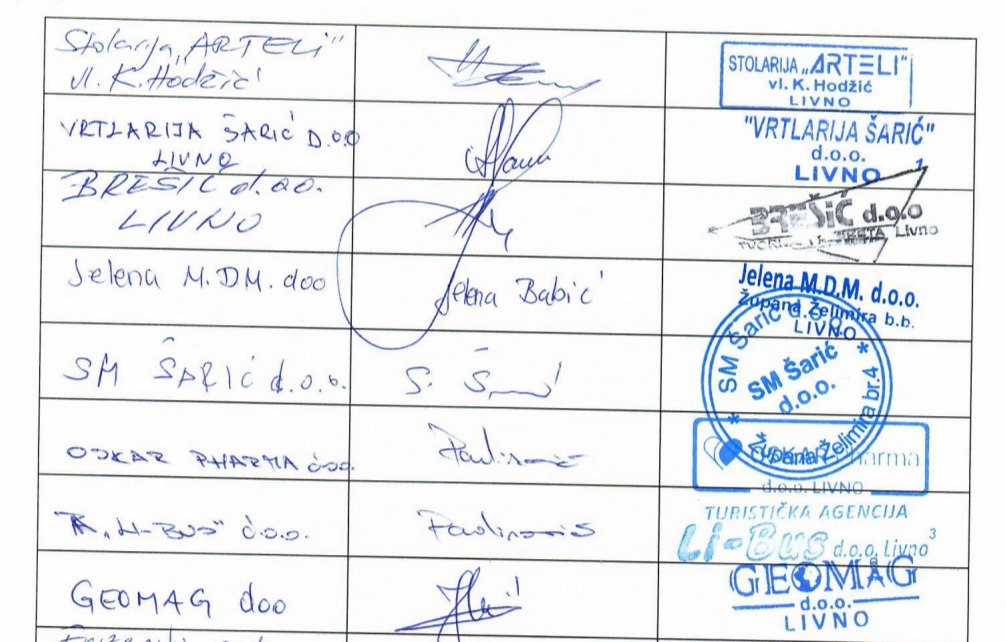 Stolarija „ARTELI"
vl. K. Hodžić
STOLARIJA „ARTELI"
vl. K. Hodžić
LIVNO
VRTLARIJA ŠARIĆ D.O.O
LIVNO
"VRTLARIJA ŠARIĆ"
d.o.o.
LIVNO
1
BREŠIĆ d.o.o.
LIVNO
BREŠIĆ d.o.o
Livno
Jelena M.DM. doo
Jelena Babić
Jelena M.D.M. d.o.o.
Župana Želimira b.b.
LIVNO
SM ŠARIĆ d.o.o.
S.
SM Šarić d.o.o.
SM Šarić
d.o.o.
Župana Želimira br.4
OSKAR PHARMA doo.
d.o.o. LIVNO
"LI-BUS" d.o.o.
TURISTIČKA AGENCIJA
Li-Bus d.o.o. Livno
3
GEOMAG doo
GEOMAG
d.o.o.
LIVNO